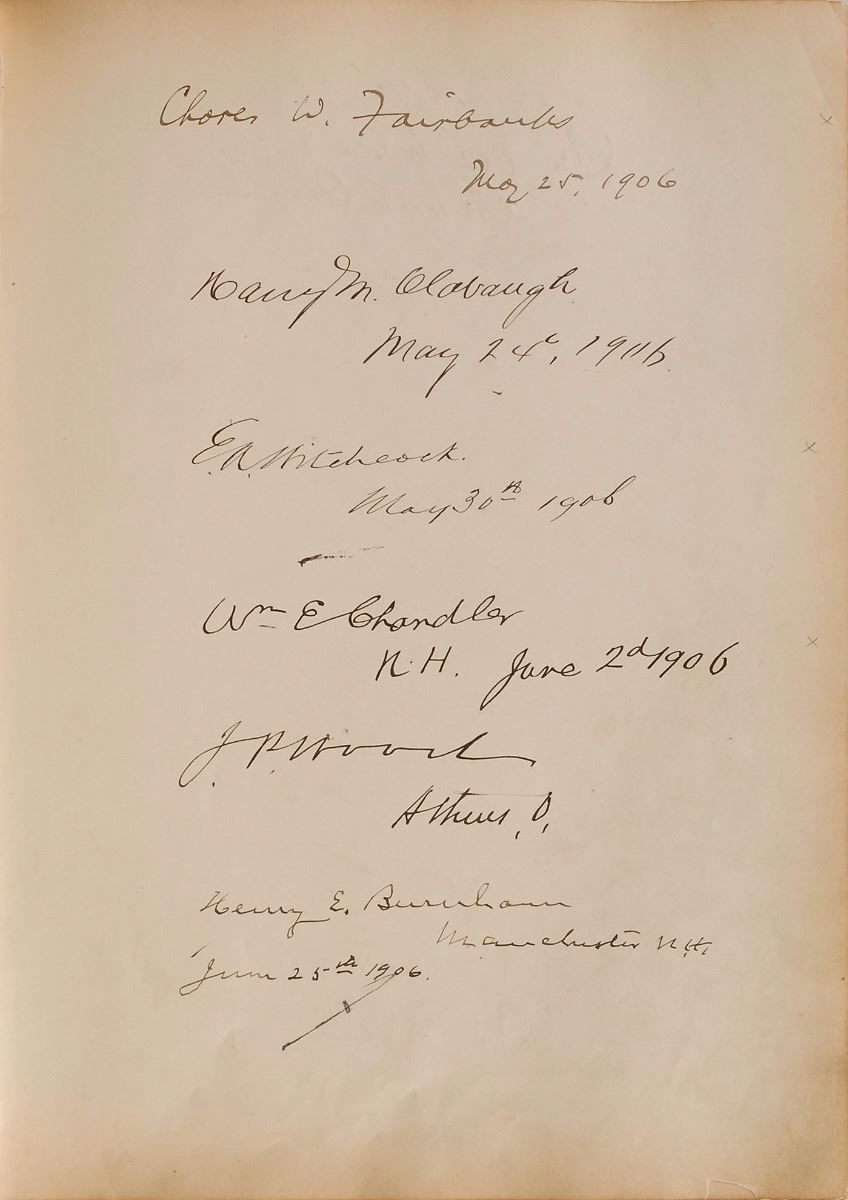 Charles W. Fairbanks
May 25, 1906
Harry M. Clabaugh
May 24th, 1906
E.A. Hitchcock.
May 30th 1906
Wm E Chandler
N.H. June 2d 1906
J. P. Wood
Athens, O,
Henry E. Burnham
Manchester N.H.
June 25th 1906.